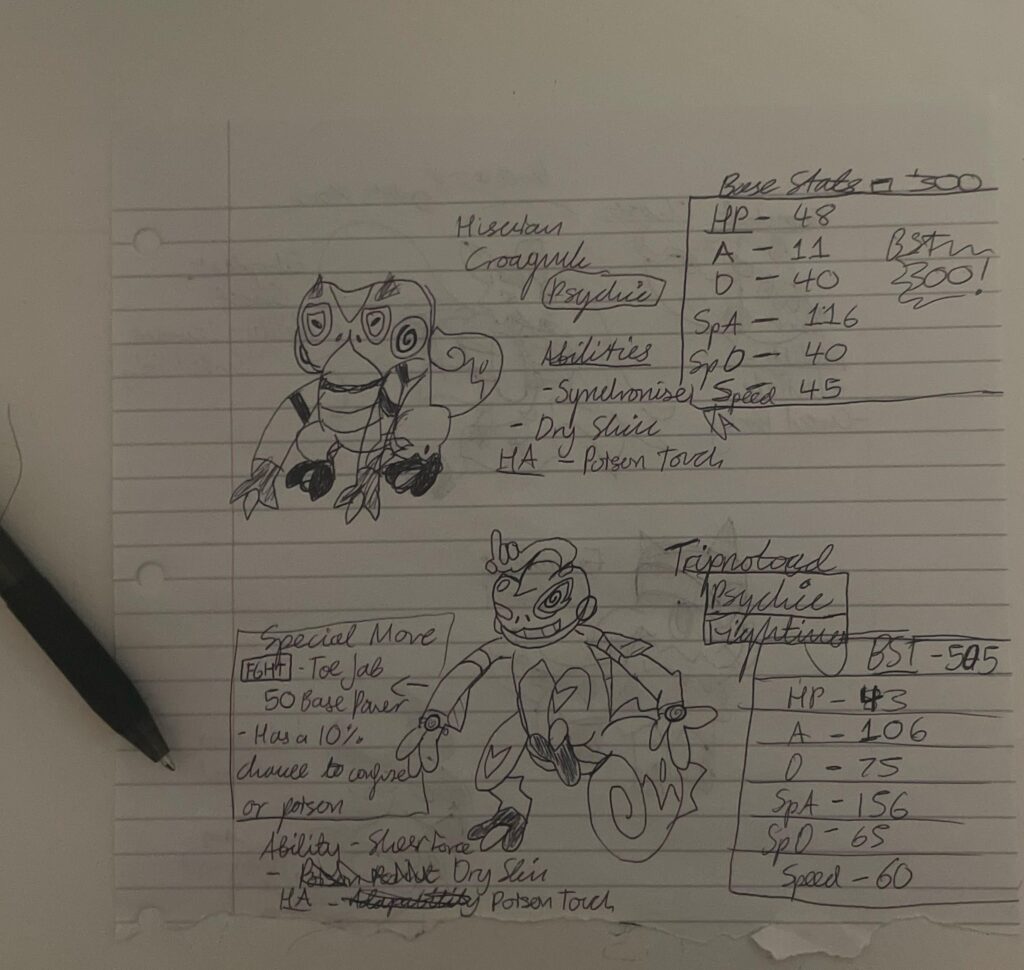 Base Stats = 300
HP - 48
A - 11
D - 40
SpA - 116
SpD - 40
Speed 45
BST
300!
Hisuian
Croagunk
Psychic
Abilities
- Synchronise
- Dry Skin
HA - Poison Touch
Tripnotoad
Psychic
Fighting
BST - 505
HP - 43
A - 106
D - 75
SpA - 156
SpD - 65
Speed - 60
Special Move
FGHT - Toe Jab
50 Base Power
- Has a 10%
chance to confuse
or poison
Ability - Sheer Force
- Dry Skin
HA - Poison Touch